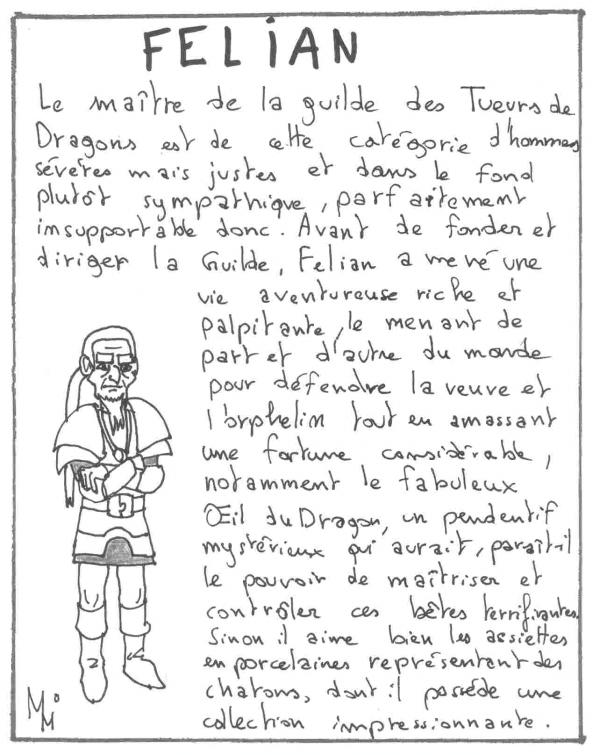 FELIAN
Le maître de la guilde des Tueurs de
Dragons est de cette catégorie d'hommes
sévères mais justes et dans le fond
plutôt sympathique, parfaitement
insupportable donc. Avant de fonder et
diriger la Guilde, Felian a mené une
vie aventureuse riche et
palpitante, le menant de
part et d'autre du monde
pour défendre la veuve et
l'orphelin tout en amassant
une fortune considérable,
notamment le fabuleux
Œil du Dragon, un pendentif
mystérieux qui aurait, paraît-il
le pouvoir de maîtriser et
contrôler ces bêtes terrifiantes.
Sinon il aime bien les assiettes
en porcelaines représentant des
chatons, dont il possède une
collection impressionnante.